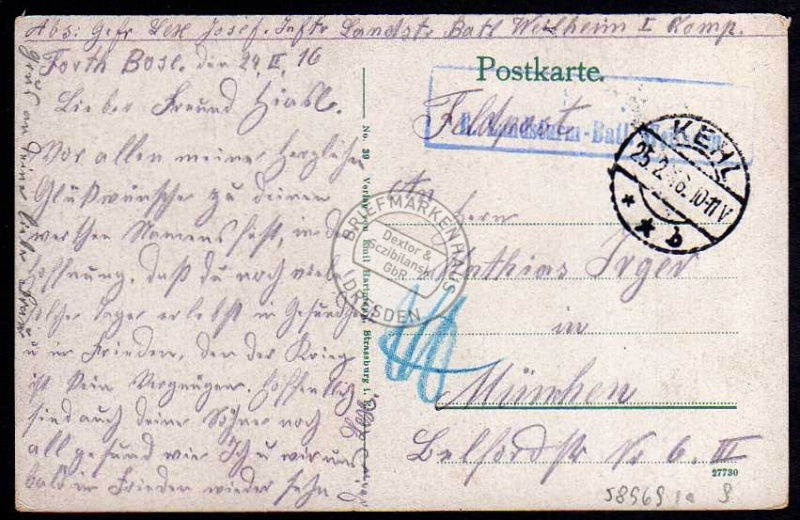 Abs: Gefr Lex Josef. Inftr Landstr Batl Weilheim I Komp.
Forth Bose. den 24.II.16
Lieber Freund Hiasl.
Vor allen meine herzliche
Glückwünsche zu deinen
werthen Namensfest, in der
Hoffnung, daß du noch viele
solcher Tager erlebst in Gesundheit
u im Frieden, den der Krieg
ist kein Vergnügen. Hoffentlich
sind auch deine Söhne noch
all gesund wie Ich u wir uns
bald im Frieden wieder sehn
Gruß an deine liebe Frau
Postkarte.
Feldpost
Landsturm-Batl.
KEHL
25.2.16.10-11V
* * b
An Herrn
Mathias Irger
in
München
Belfordstr No 6. III
No. 39 Verlag von Emil Hartmann, Strassburg i. E.
BRIEFMARKENHAUS
Dextor &
Sczibilanski
GbR
DRESDEN
27730